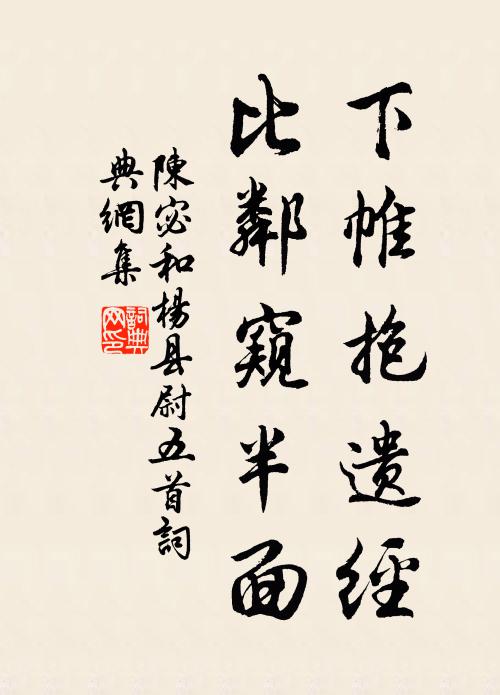 下帷抱遗經
比鄰窺半面
陳宓和楊县尉五首詞
典網集
詞典
网印